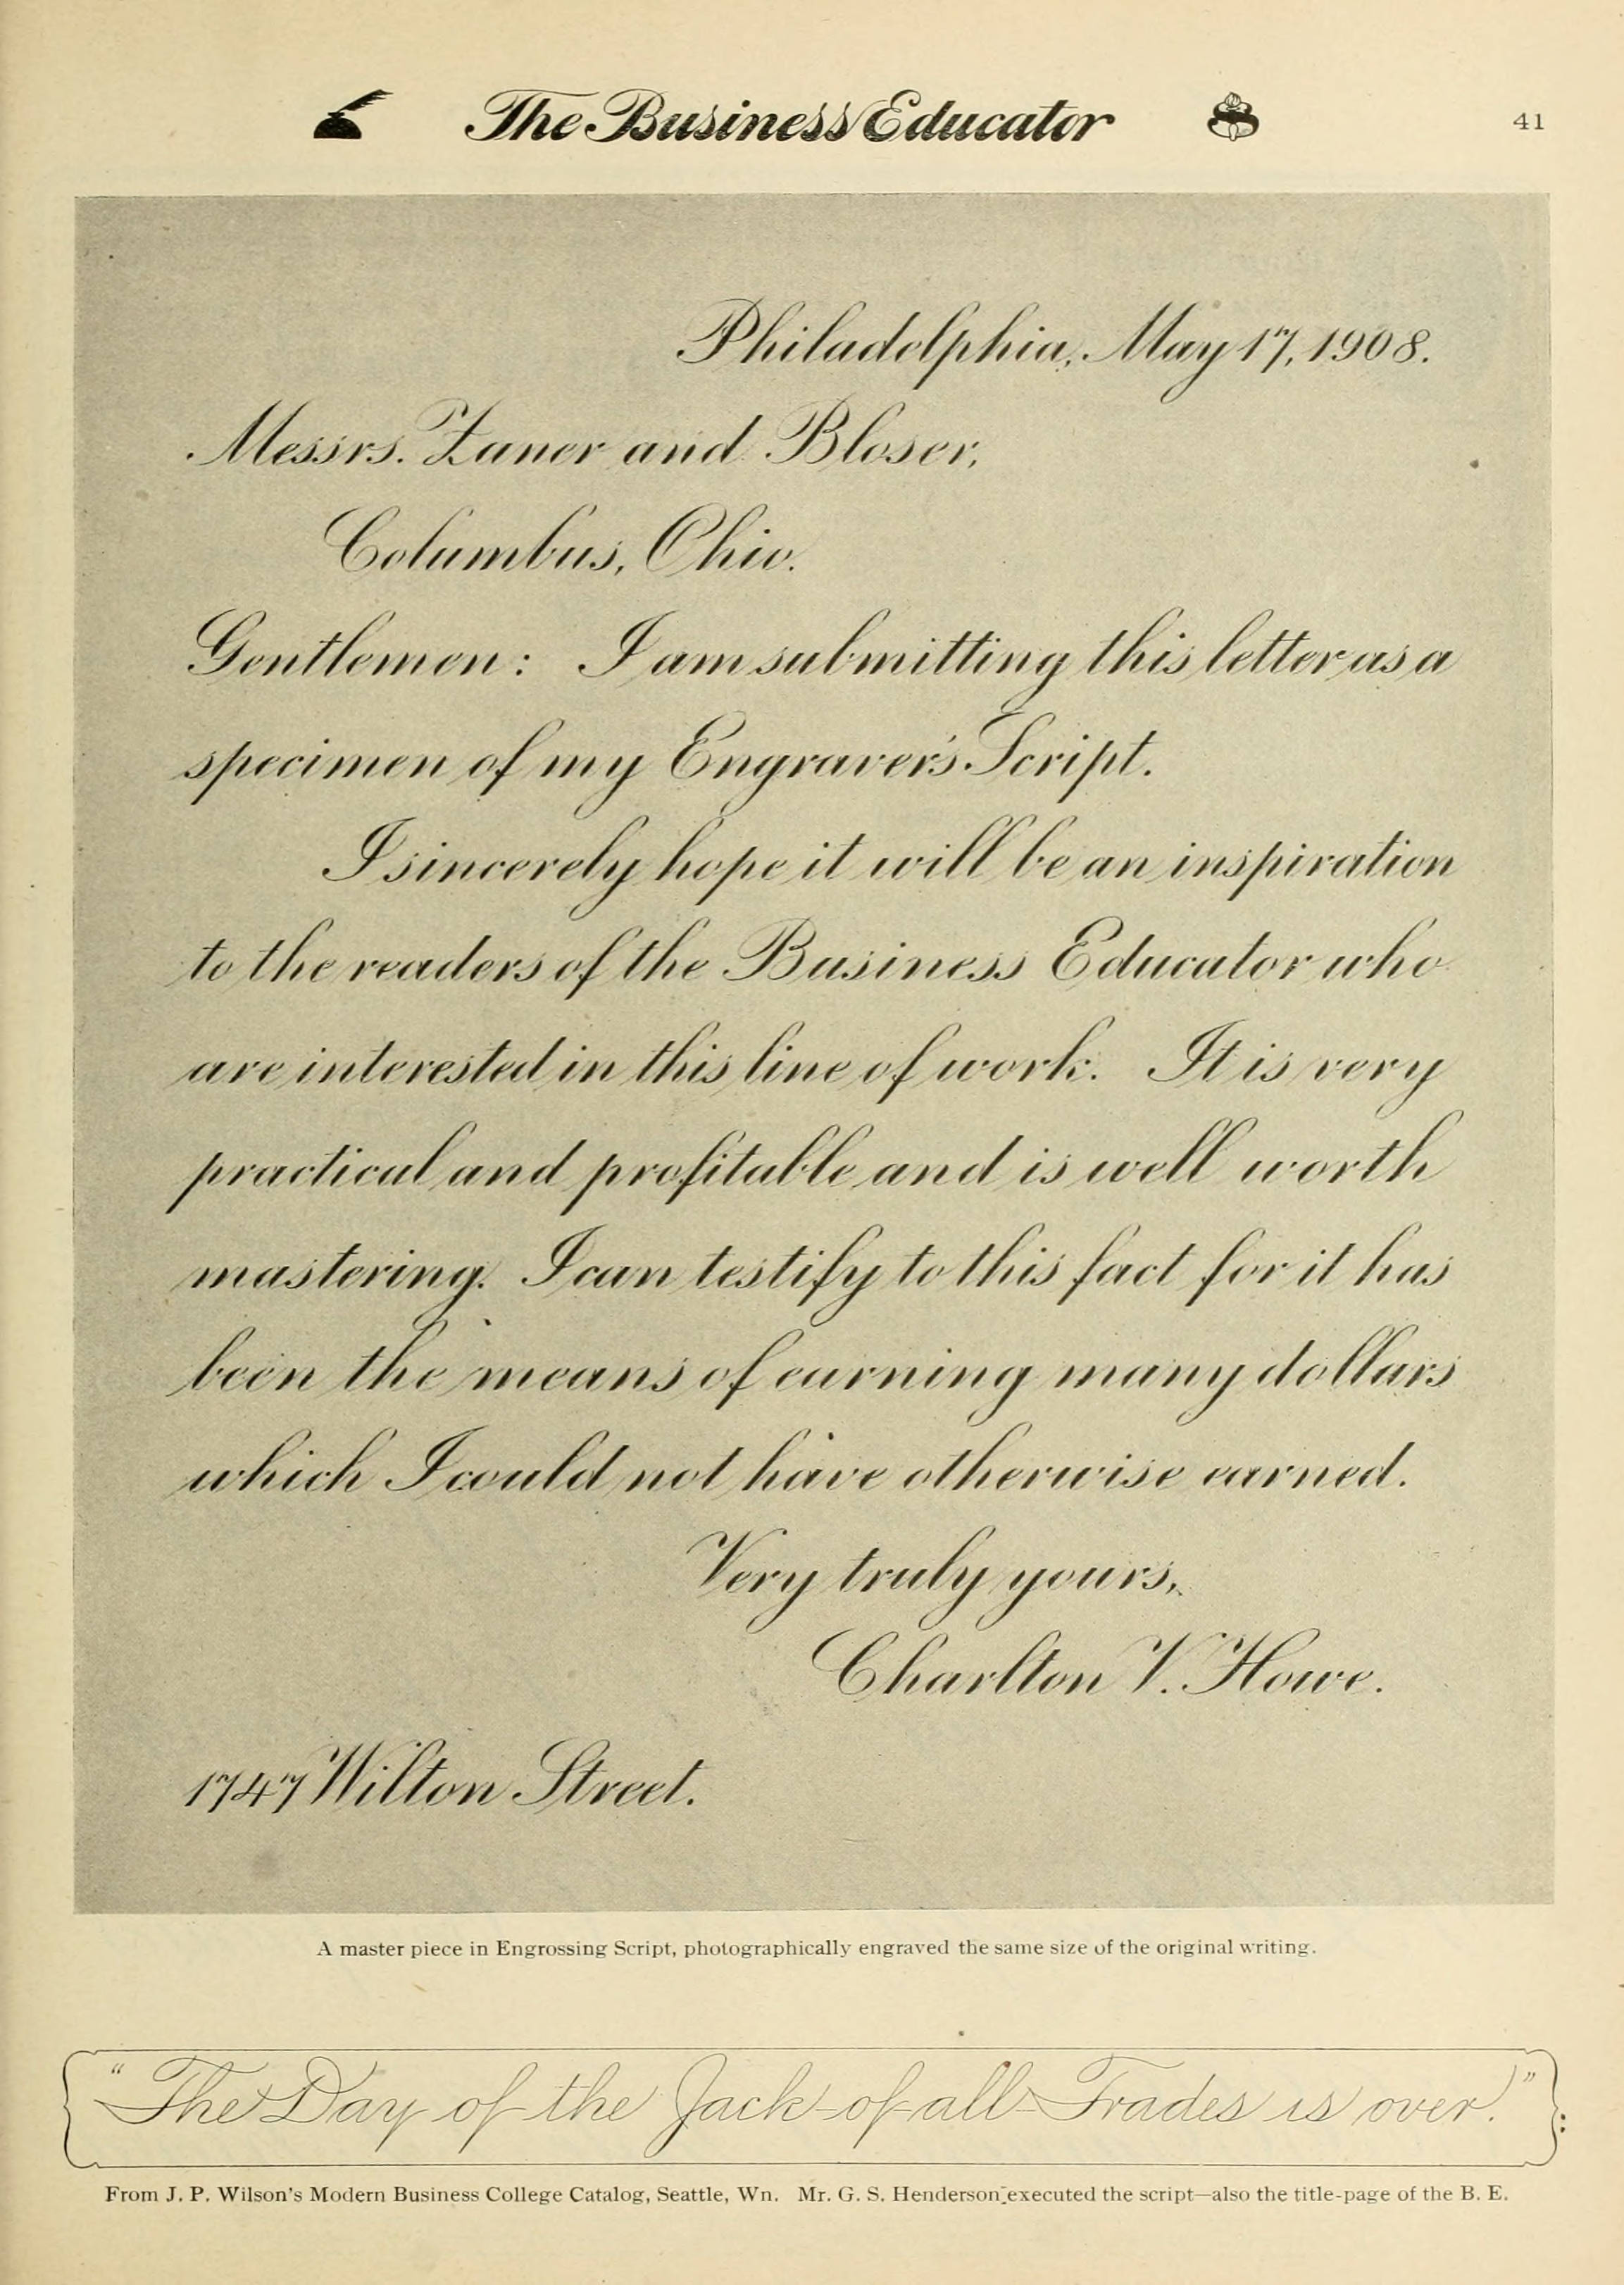 The Business Educator
41
Philadelphia, May 17, 1908.
Messrs. Zaner and Bloser,
Columbus, Ohio.
Gentlemen: I am submitting this letter as a
specimen of my Engraver's Script.
I sincerely hope it will be an inspiration
to the readers of the Business Educator who
are interested in this line of work. It is very
practical and profitable and is well worth
mastering. I can testify to this fact for it has
been the means of earning many dollars
which I could not have otherwise earned.
Very truly yours,
Charlton V. Howe.
1747 Wilton Street.
A master piece in Engrossing Script, photographically engraved the same size of the original writing.
"The Day of the Jack-of-all-Trades is over."
From J. P. Wilson's Modern Business College Catalog, Seattle, Wn. Mr. G. S. Henderson executed the script—also the title-page of the B. E.